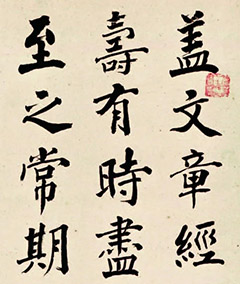 盖文章經
壽有時盡
至之常期